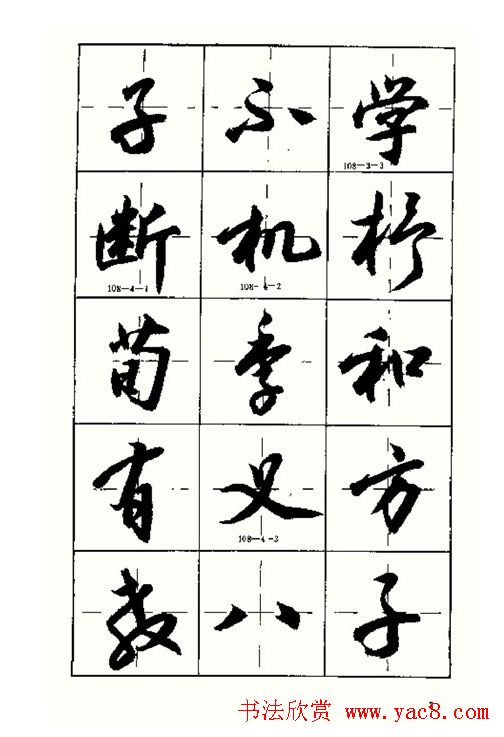 子不学
108-3-3
断机杼
108-4-1 108-4-2
荀季和
有义方
108-4-3
教八子
书法欣赏 www.yac8.com